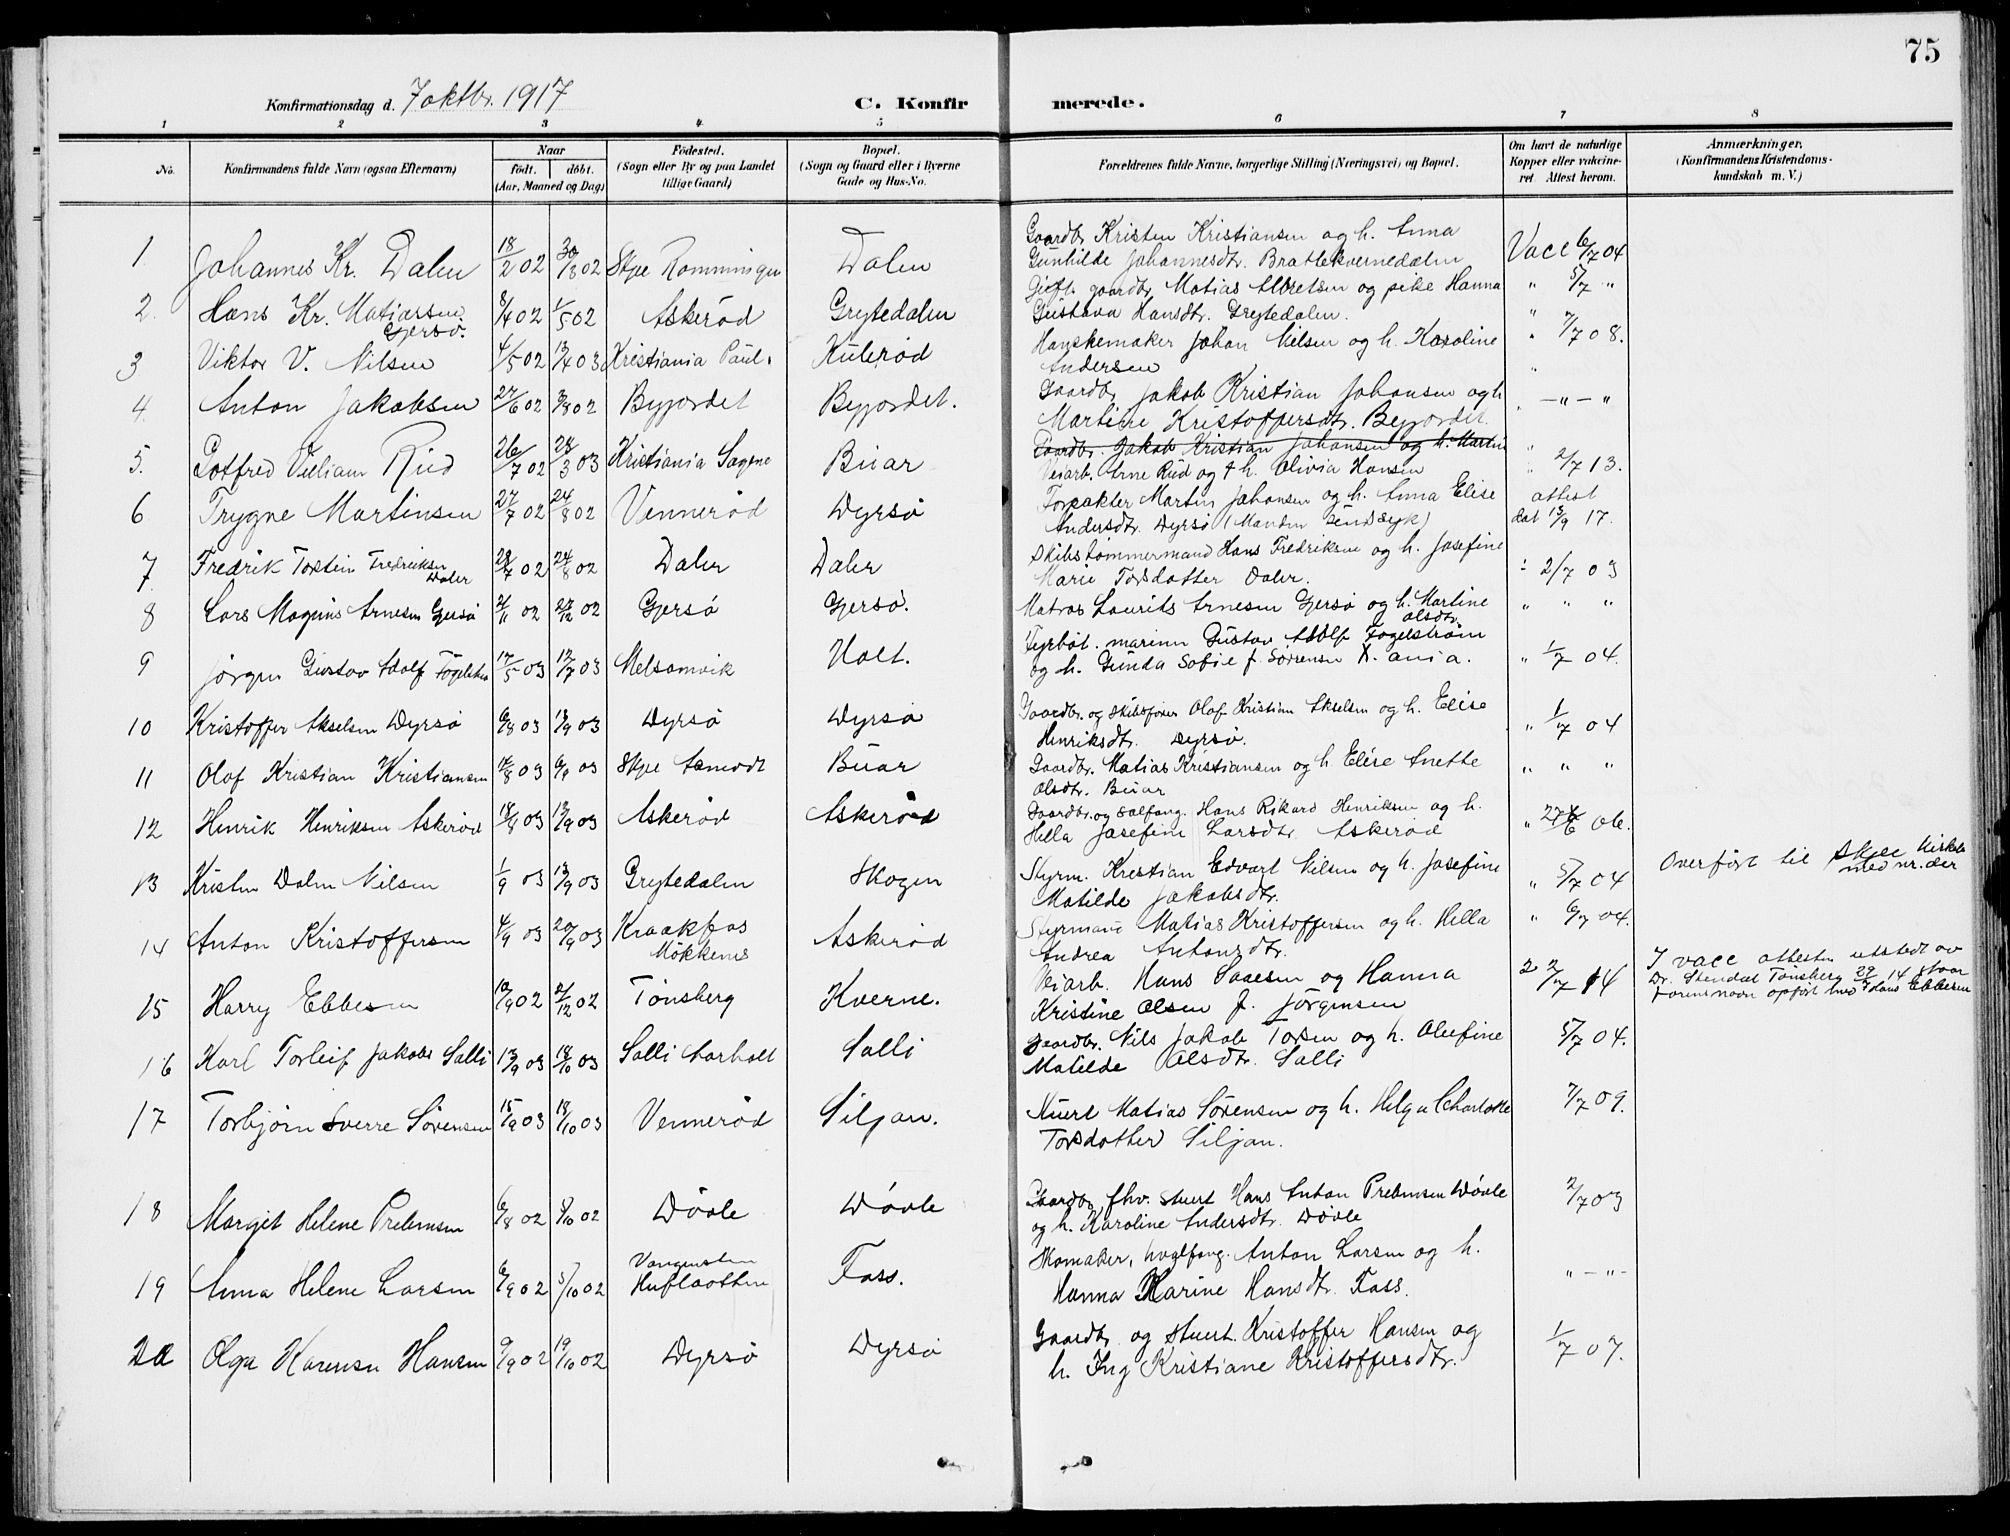 75
Konfirmationsdag d. 7 oktbr. 1917
C. Konfirmerede.
1 2 3 4 5 6 7 8
No.
Konfirmandens fulde Navn (ogsaa Efternavn)
Naar
födt. döbt.
(Aar, Maaned og Dag)
Födested.
(Sogn eller By og paa Landet
tillige Gaard)
Bopæl.
(Sogn og Gaard eller i Byerne
Gade og Hus-No.
Forældrenes fulde Navne, borgerlige Stilling (Næringsvei) og Bopæl.
Om havt de naturlige
Kopper eller vakcine-
ret. Attest herom.
Anmærkninger.
(Konfirmandens Kristendoms-
kundskab m. V.)
1 Johannes Kr. Dalen 18/2 02 30/3 02 Skjee Dalen Gaardbr. Kristen Kristiansen og h. Anna Vacc 6/7 04
Gunhilde Johannesdtr. Brattekvernedalen
2. Hans Kr. Matiassen 8/4 02 1/5 02 Askeröd Grytedalen Gift gaardbr. Matias og pike Hanna " 5/7 "
Gjersö. Gustava Hansdtr. Grytedalen.
3 Viktor V. Nilsen 4/5 02 13/4 03 Kristiania Paul. Kuleröd Hanskemaker Johan Nilsen og h. Karoline " 7/7 08.
Andersen
4. Anton Jakobsen 27/6 02 3/8 02 Byjordet Byjordet. Gaardbr. Jakob Kristian Johansen og h. " — " — "
Martine Kristoffersdtr. Byjordet.
Gaardbr. Jakob Kristian Johansen og h. Martin
5. Gotfred Viliam Rud 26/7 02 28/3 03 Kristiania Sagene Buar Veiarb. Arne Rud og † h. Olivia Hansen " 2/7 13.
6 Trygve Martinsen 27/7 02 24/8 02 Venneröd Dyrsö Forpakter Martin Johansen og h. Anna Elise attest
Andersdtr. Dyrsö (Manden sindssyk) dat 13/9 17.
7. Fredrik Torstein Fredriksen 28/7 02 24/8 02 Dalen Dalen Skibstömmermand Hans Fredriksen og h. Josefine
Dalen Marie Torsdatter Dalen. " 2/7 03
8 Lars Magnus Arnesen Gjersö 2/11 02 27/12 02 Gjersö Gjersö. Matros Laurits Arnesen Gjersö og h. Martine " " "
Olsdtr.
9 Jörgen Gustav Adolf 17/5 03 12/7 03 Melsomvik Holt. Fyrböt. marinen Gustav Adolf Fogelström
og h. Gunda Sofie f. Sörensen " 1/7 04.
10 Kristoffer Akselsen Dyrsö 6/8 03 13/9 03 Dyrsö Dyrsö Gaardbr. og Skibsförer Olaf Kristian Akselsen og h. Elise
Henriksdtr. Dyrsö. " 1/7 04
11 Olaf Kristian Kristiansen 14/8 03 6/9 03 Skjee Buar Gaardbr. Matias Kristiansen og h. Elise Anette " " "
Olsdtr. Buar
12 Henrik Henriksen Askeröd 18/8 03 13/9 03 Askeröd Askeröd Gaardbr. og sælfang. Hans Rikard Henriksen og h.
Hella Josefine Larsdtr. Askeröd " 27/6 06.
13 Kristen Dalen Nilsen 1/9 03 13/9 03 Grytedalen Skogen Styrm. Kristian Edvart Nilsen og h. Josefine " 5/7 04 Overfört til Skjee kirke
Matilde Jakobsdtr. med nr. der
14 Anton Kristoffersen 4/9 03 20/9 03 Kraakfos Askeröd Styrmand Matias Kristoffersen og h. Hella " 6/7 04.
Andrea Antonsdtr.
15 Harry Ebbesen 10/9 02 21/12 02 Tönsberg Kverne. Veiarb. Hans og Hanna 2/7 14 I vacc attesten utstedt av
Kristine Olsen f. Jörgensen Dr. Tönsberg 29/7 14 staar
fornavn opfört Ebbesen
16 Karl Torleif Jakobs Salli 13/9 03 18/10 03 Salli Aarholt Salli Gaardbr. Nils Jakob Torsen og h. Olefine 5/7 04.
Matilde Olsdtr. Salli
17 Torbjörn Sverre Sörensen 15/9 03 18/10 03 Venneröd Siljan. Stuert Matias Sörensen og h. Helga Charlotte 7/7 09.
Torsdotter Siljan.
18 Margit Helene Prebensen 6/8 02 5/10 02 Dövle Dövle Gaardbr. fhv. stuert Hans Anton Prebensen Dövle 2/7 03
og h. Karoline Andersdtr. Dövle
19 Anna Helene Larsen 6/9 02 5/10 02 Fass. Skomaker, hvalfang. Anton Larsen og h. " — " —
Hanna Karine Hansdtr. Fass.
20 Olga Hansen 9/9 02 19/10 02 Dyrsö Dyrsö Gaardbr. og Stuert. Kristoffer Hansen og 1/7 07.
h. Ing Kristiane Kristoffersdtr.